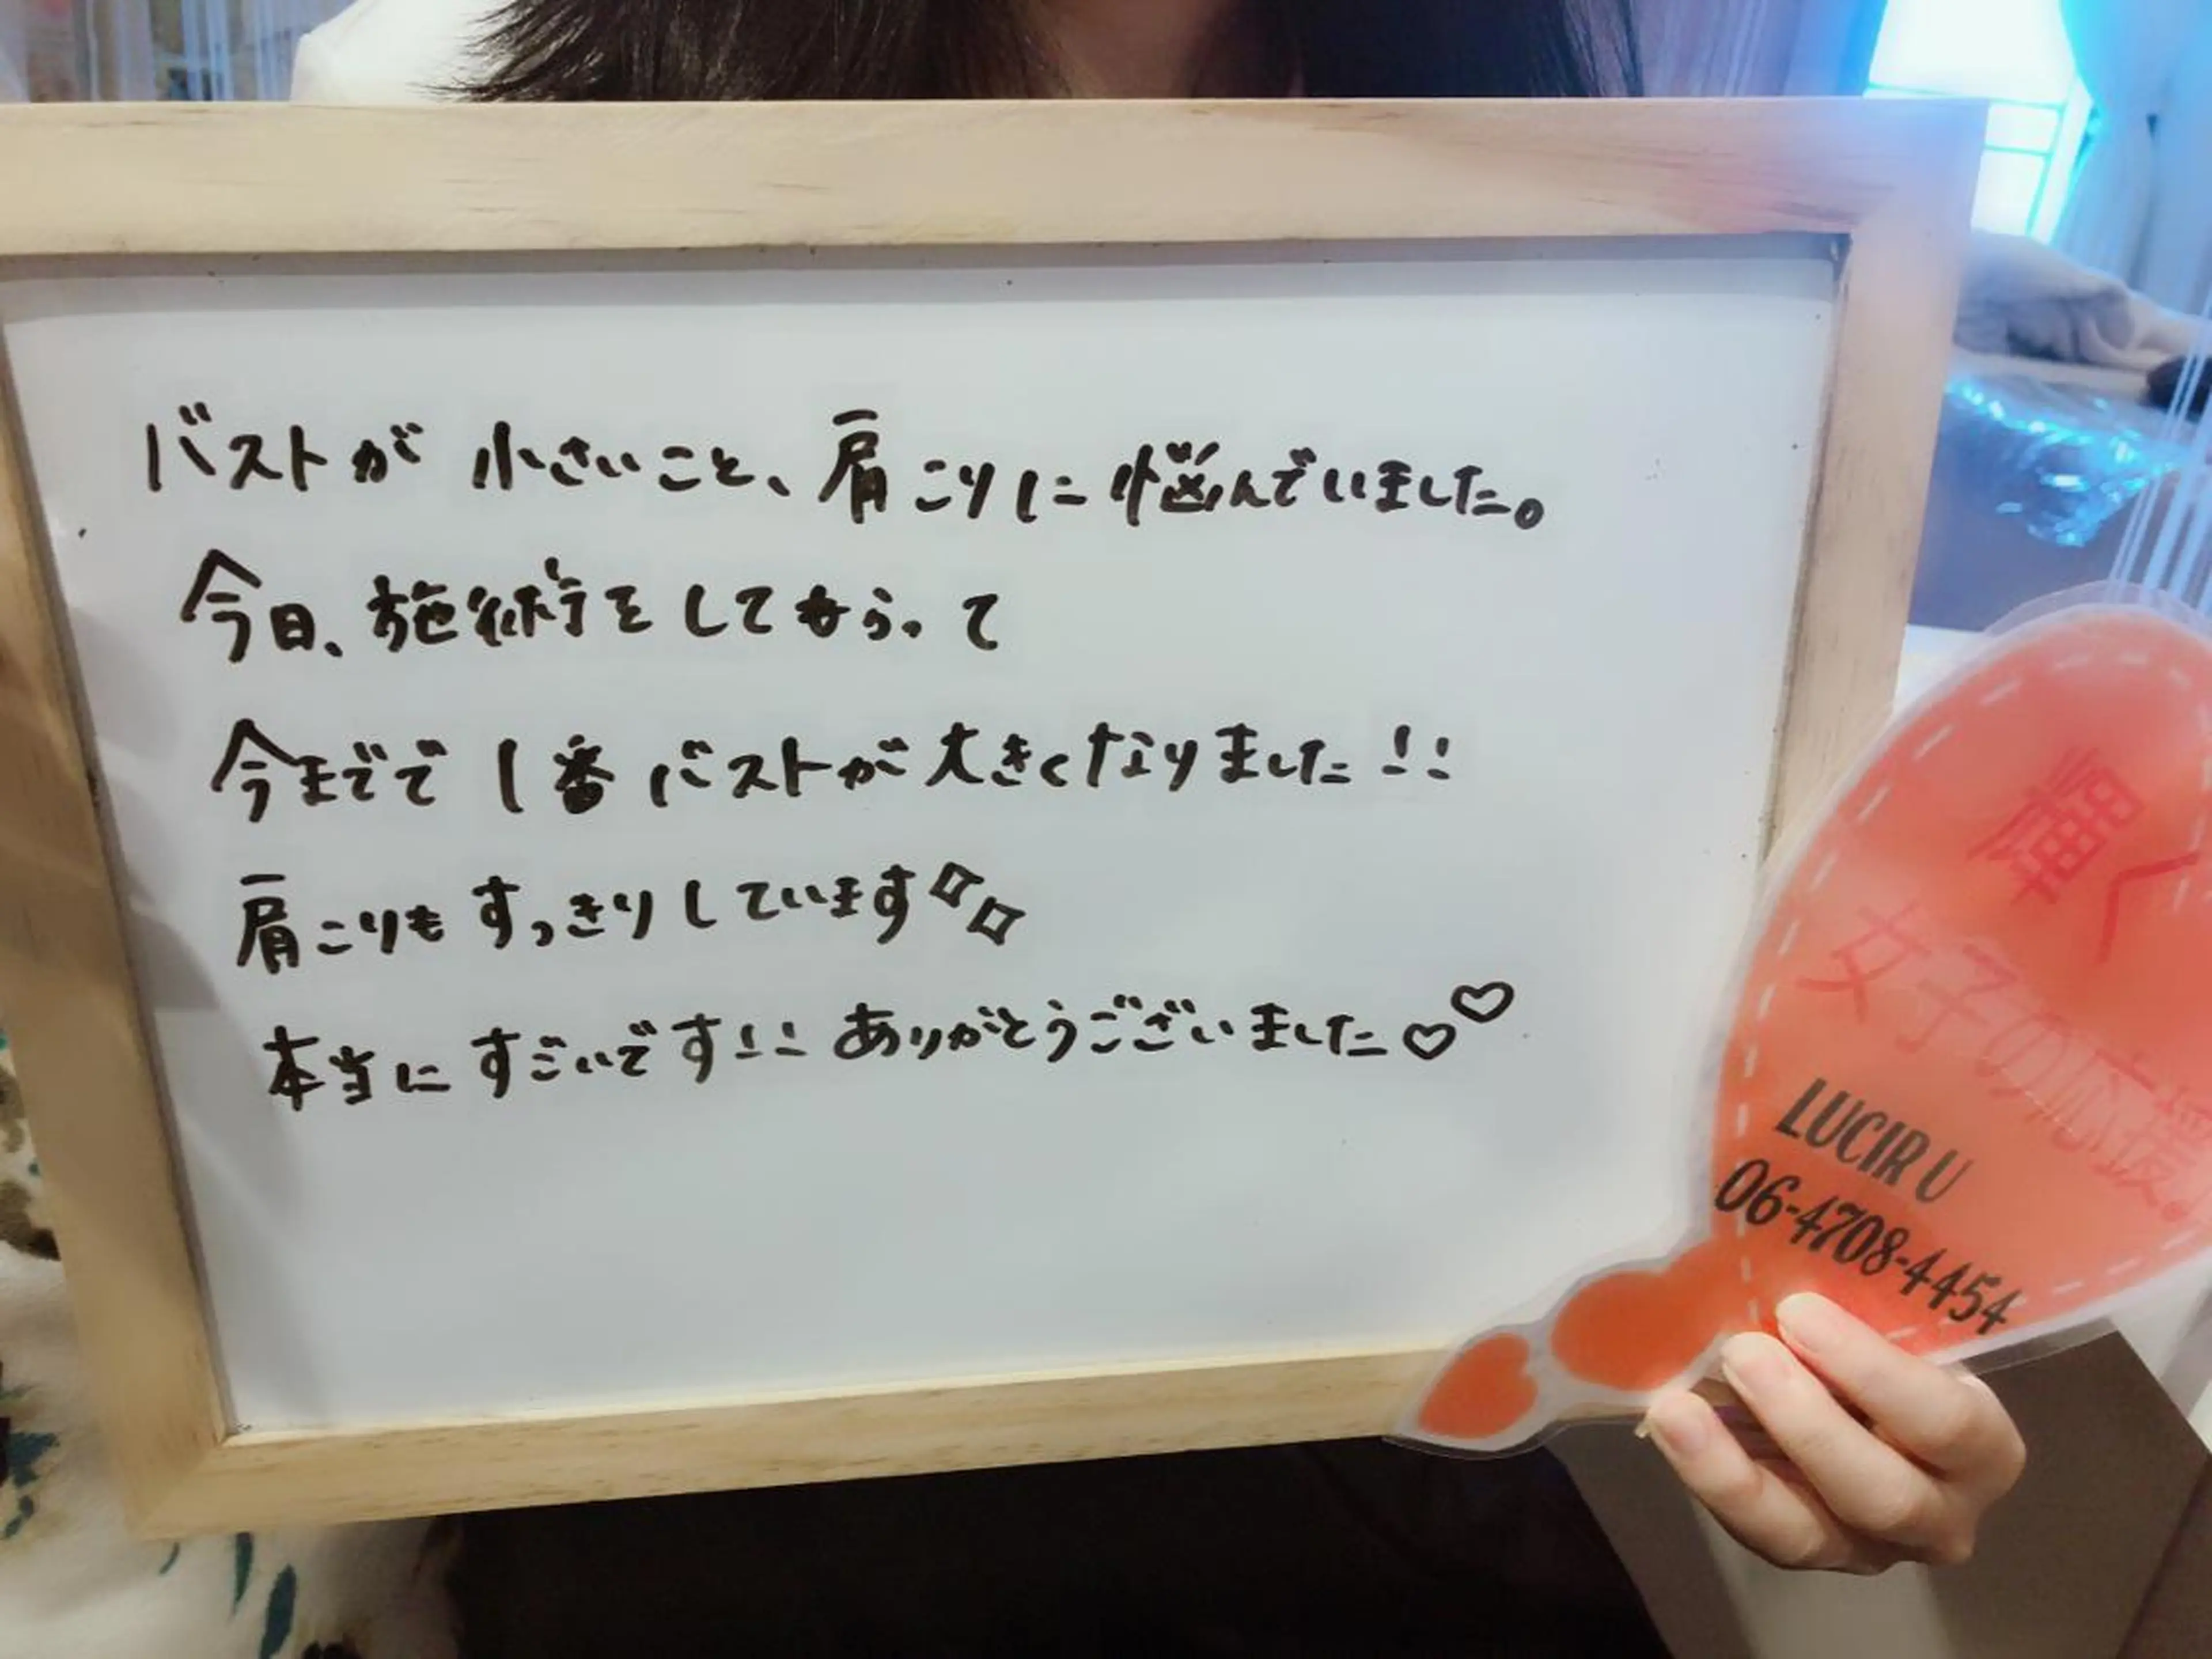 バストが小さいこと、肩こりに悩んでいました。
今日、施術をしてもらって
今までで1番バストが大きくなりました!!
肩こりもすっきりしています
本当にすごいです!!ありがとうございました♡♡
輝く
女子の応援
LUCIRU
06-4708-4454